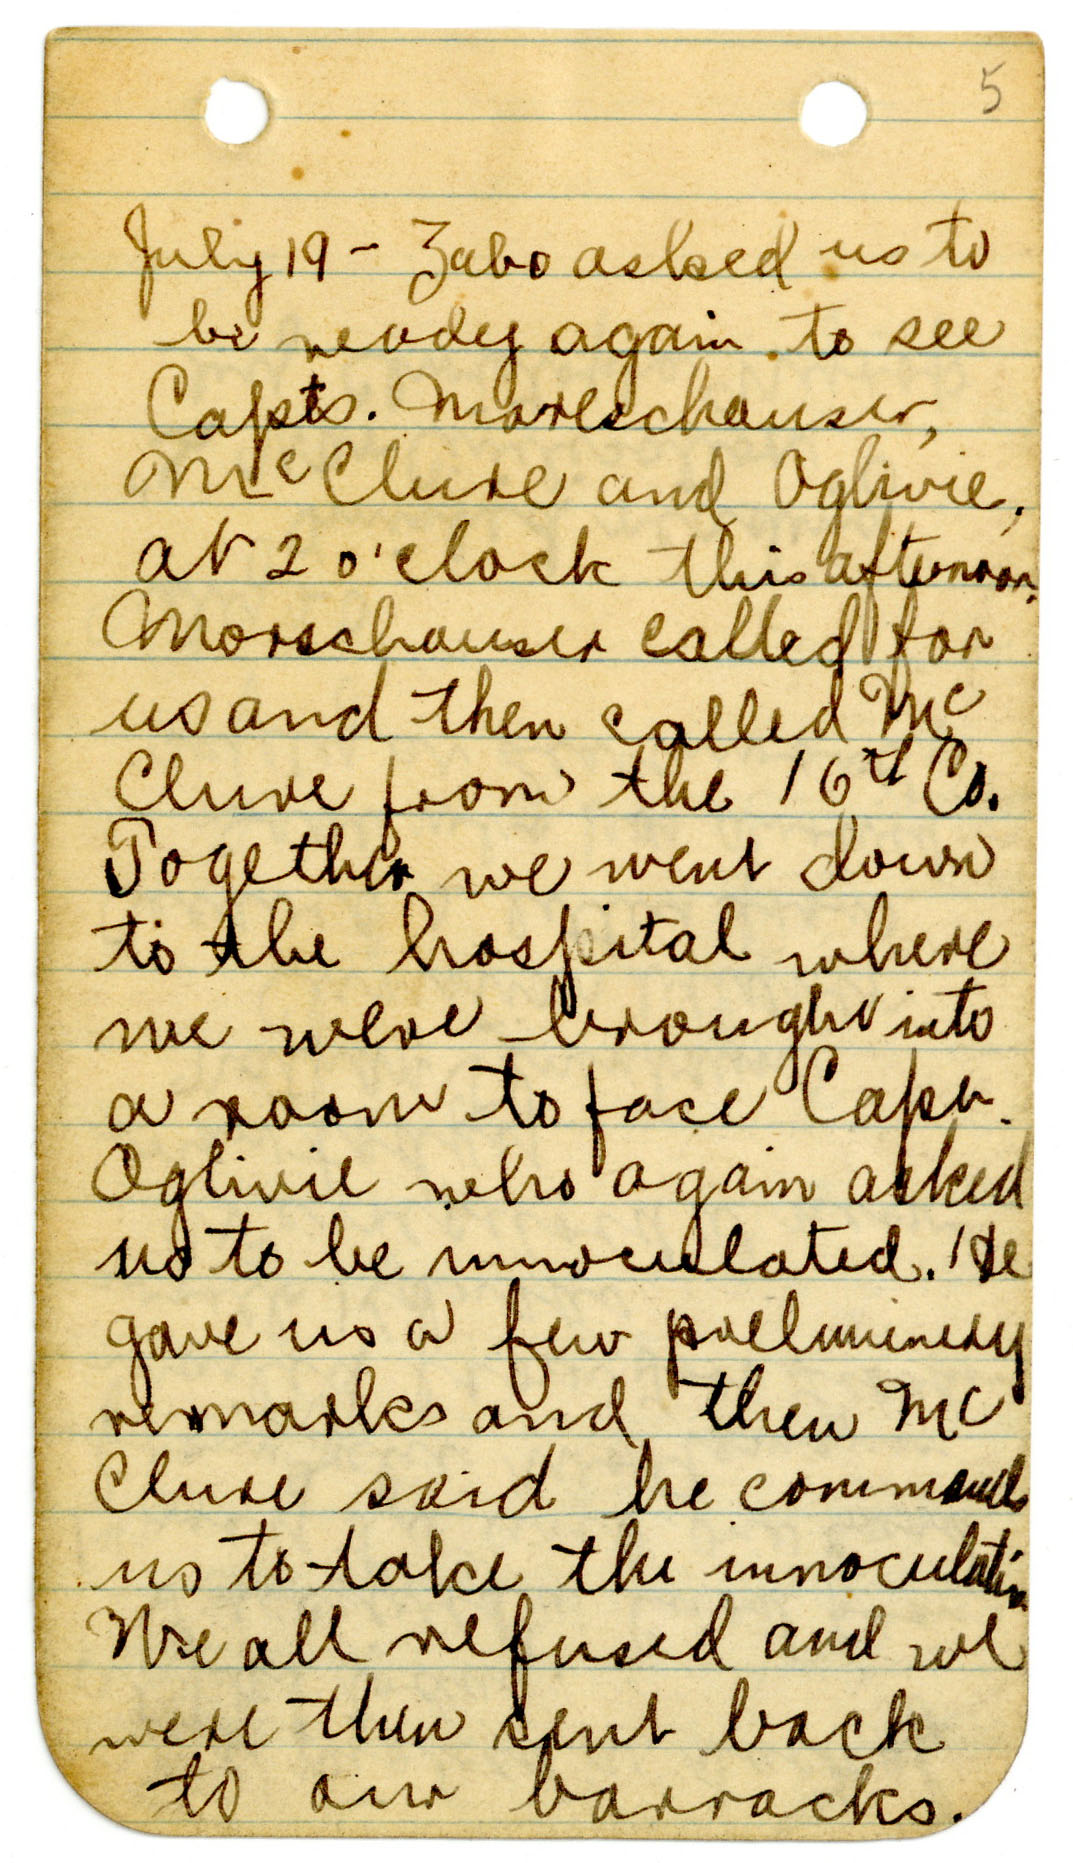 5
July 19 - Zabo asked us to
be ready again to see
Capts. Moreschauser,
McClure and Oglivie,
at 2 o'clock this afternoon.
Morschauser called for
us and then called Mc
Clure from the 16th Co.
Together we went down
to the hospital where
we were brought into
a room to face Capt.
Oglivie who again asked
us to be innoculated. He
gave us a few preliminery
remarks and then Mc
Clure said he commands
us to take the innoculation.
We all refused and we
were then sent back
to our barracks.